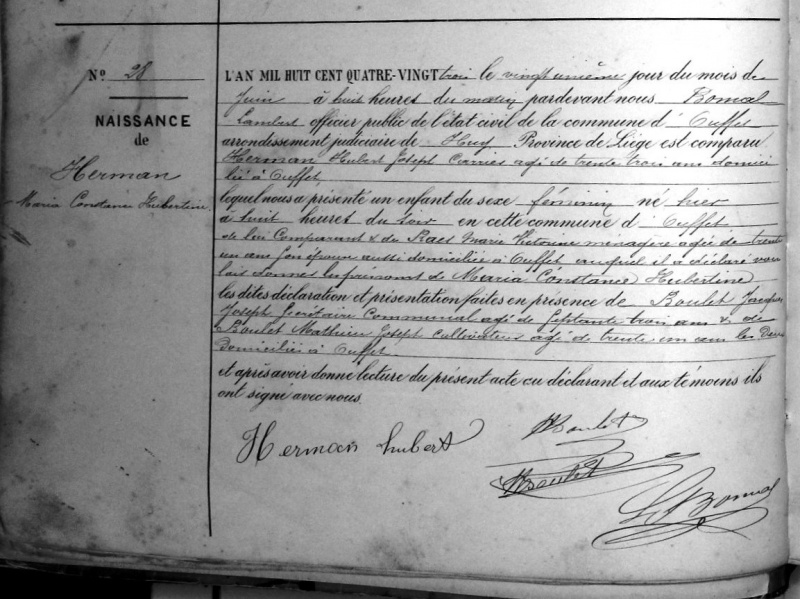 N° 28
NAISSANCE
de
Herman
Maria Constance Hubertine
L'AN MIL HUIT CENT QUATRE-VINGT trois le vingt unième jour du mois de
Juin à huit heures du matin pardevant nous Bomal
Lambert officier public de l'état civil de la commune d' Ouffet
arrondissement judiciaire de Huy Province de Liège est comparu
Herman Hubert Joseph Carrier agé de trente trois ans domici
lié à Ouffet
lequel nous a présenté un enfant du sexe féminin né hier
à huit heures du soir en cette commune d' Ouffet
de lui Comparant & de Raes Marie Victorine ménagère agée de trente
un ans son épouse aussi domiciliée à Ouffet auquel il a déclaré vou
loir donner les prénoms de Maria Constance Hubertine
les dites déclaration et présentation faites en présence de Boulet Jacques
Joseph Secrétaire Communal agé de septante trois ans & de
Boulet Mathieu Joseph cultivateur agé de trente un ans les Deux
domiciliés à Ouffet
et après avoir donné lecture du présent acte au déclarant et aux témoins ils
ont signé avec nous.
Herman hubert
Boulet
Boulet
L Bomal